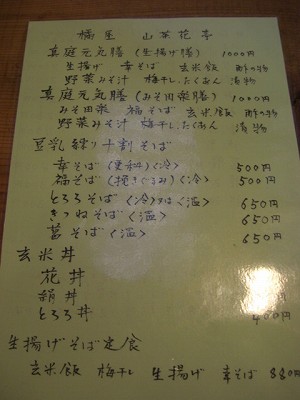 橘屋 山茶花亭
真庭元気膳(生揚げ膳) 1000円
生揚げ 幸そば 玄米飯 酢の物
野菜みそ汁 梅干し、たくあん 漬物
真庭元気膳(みそ田楽膳) 1000円
みそ田楽 福そば 玄米飯 酢の物
野菜みそ汁 梅干し、たくあん 漬物
豆乳練り十割そば
幸そば(更科)〈冷〉 500円
福そば(挽きぐるみ)〈冷〉 500円
とろろそば〈冷〉又は〈温〉 650円
きつねそば〈温〉 650円
そば〈温〉 650円
玄米丼
花丼
絹丼
とろろ丼 400円
生揚げそば定食
玄米飯 梅干し 生揚げ 幸そば 880円